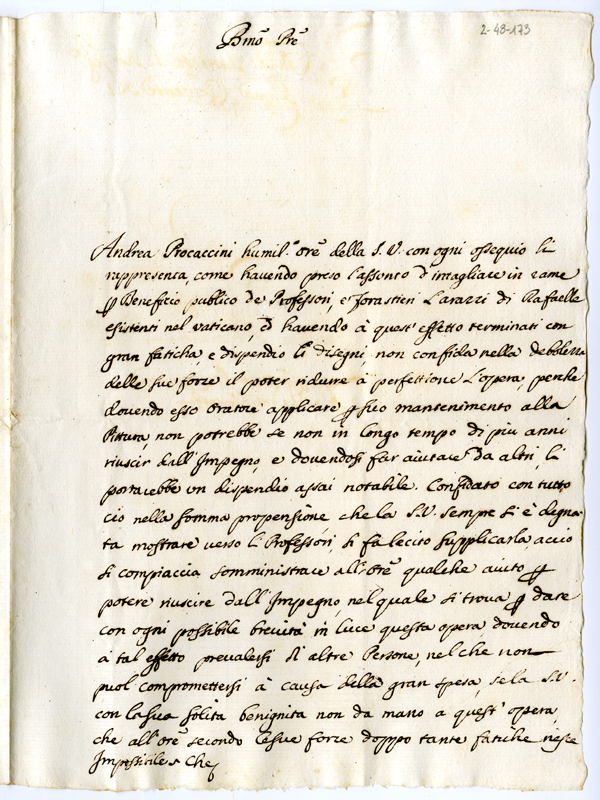 2-48-173
Bmõ Prẽ
Andrea Procaccini humil.ᵒ orẽ della S. V. con ogni ossequio li
rappresenta, come havendo preso l'assonto d'intagliare in rame
ꝑ Beneficio publico de Professori, e forastieri l'arazzi di Rafaelle
esistenti nel vaticano, et havendo à quest'effetto terminati con
gran faticha, e dispendio li disegni, non confida nella debbolezza
delle sue forze il poter ridurre à perfettione l'opera, perche
dovendo esso oratore applicare ꝑ suo mantenimento alla
Pittura, non potrebbe se non in longo tempo di piu anni
riuscir dall'Impegno, e dovendosi far aiutare da altri, li
portarebbe un dispendio assai notabile. Confidato con tutto
cio nella somma propensione che la S.V. sempre si è degna-
ta mostrare verso li Professori, si fa lecito supplicarla, accio
si compiaccia somministrare all'orẽ qualche aiuto ꝑ
potere riuscire dall'Impegno, nel quale si trova ꝑ dare
con ogni possibile brevità in luce questa opera dovendo
à tal effetto prevalersi di altre Persone, nel che non
puol compromettersi à causa della gran spesa, se la S.V.
con la sua solita benignita non da mano a quest'opera
che all'orẽ secondo le sue forze doppo tante fatiche riesce
Impossibile Che